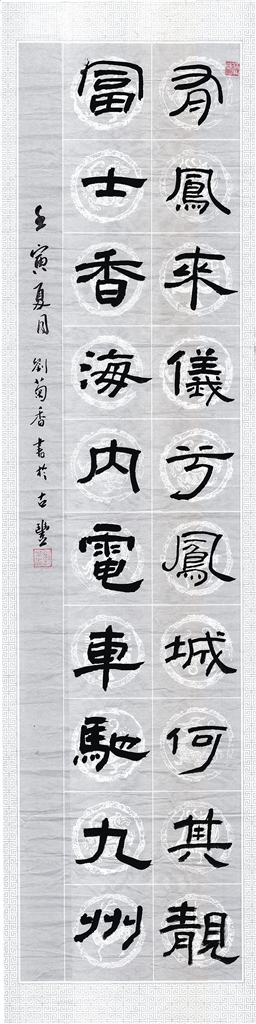 有鳳來儀兮鳳城何其靚
冨士香海内電車馳九州
壬寅夏月劉菊香書於古豐